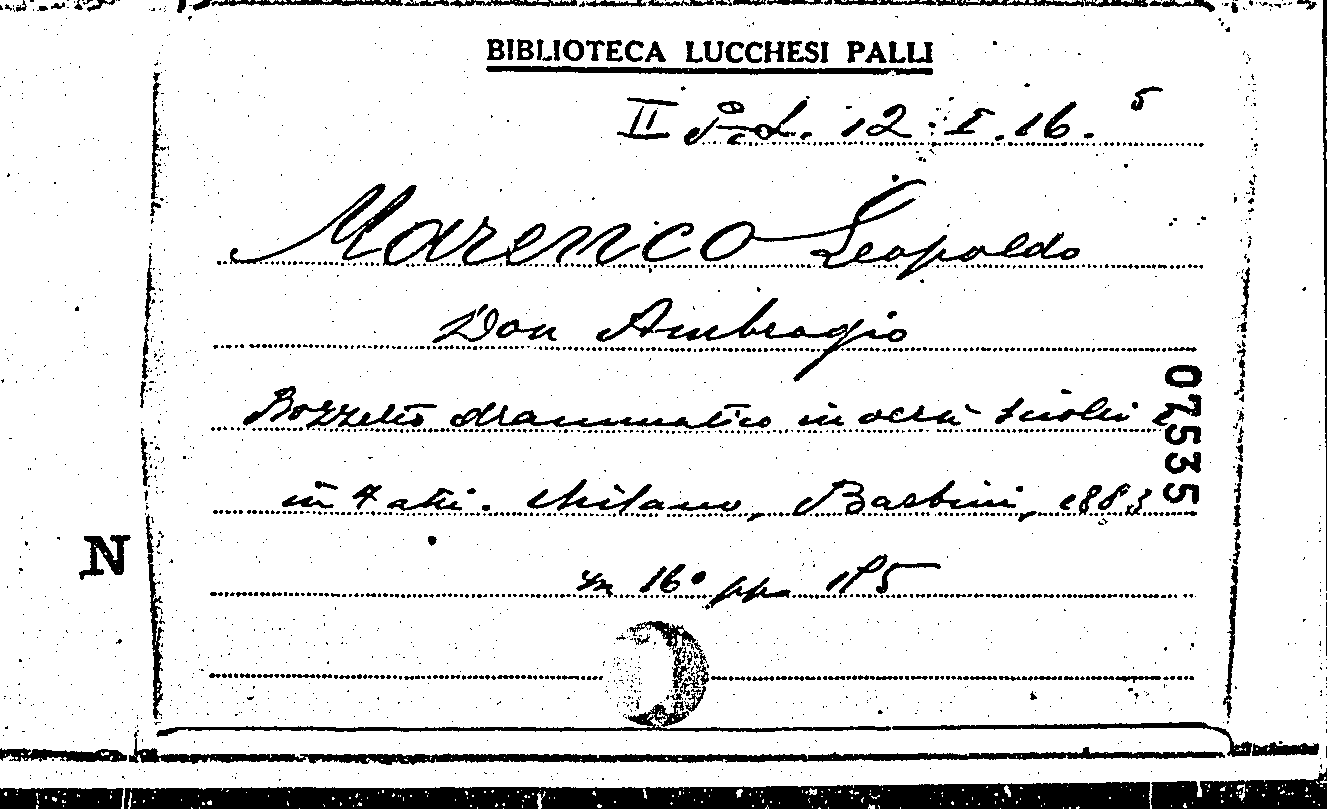 BIBLIOTECA LUCCHESI PALLI
II P.c L. 12. I. 16. 5
Marenco Leopoldo
Don Ambrogio
Bozzetto drammatico in versi sciolti
in 4 atti. Milano, Barbini, 1883
in 16° pp.
07535
N